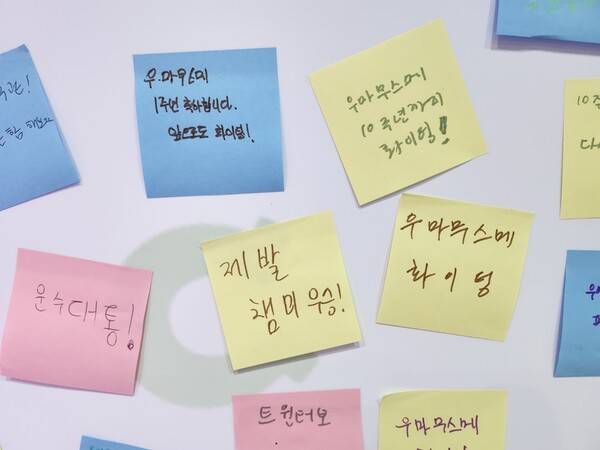 우마무스메
1주년 축하합니다.
앞으로도 화이팅!
우마무스메
10주년까지
화이팅!
10주
다
운수대통!
제발
챔미 우승!
우마무스메
화이팅
트윈터보
우마무스메